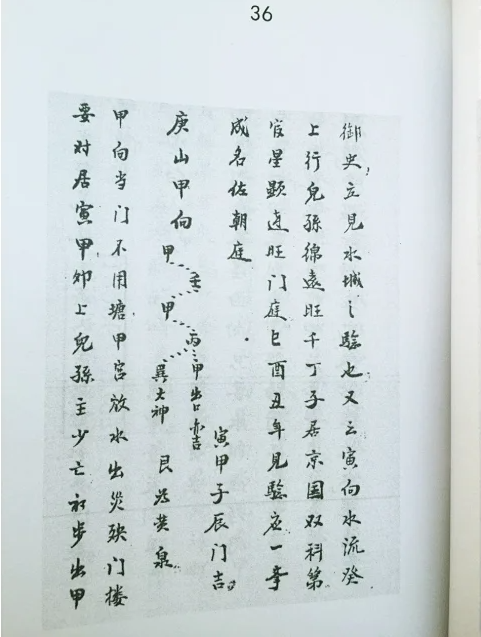 36
御史，立见水城之驗也又云寅向水流癸
上行兒孫綿遠旺千丁子居京国双科第
官星顕达旺门庭巳酉丑年見驗应一挙
成名佐朝庭
庚山甲向
甲
壬
甲
丙
甲出口亦吉
巽大神
寅甲子辰门吉
艮为黄泉
甲向当门不用塘甲宫放水出災殃门楼
要对居寅甲卯上兒孫主少亡初步出甲